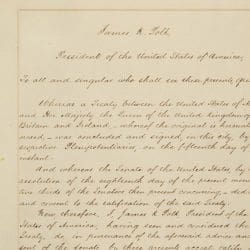 James K. Polk,
President of the United States of America,
To all and singular who shall see these presents, Greeting:
Whereas a Treaty between the United States of
and Her Majesty the Queen of the United Kingdom of
Britain and Ireland, whereof the original is hereunto
nexed, was concluded and signed, in this city, by
respective Plenipotentiaries, on the fifteenth day of
instant.
And whereas the Senate of the United States, by
resolution of the eighteenth day of the present
two thirds of the Senators then present concurring,
and consent to the ratification of the said Treaty.
Now therefore, I, James K. Polk, President of the
States of America, having seen and considered the
Treaty, do, in pursuance of the aforesaid advice and
sent of the Senate, by these presents, accept